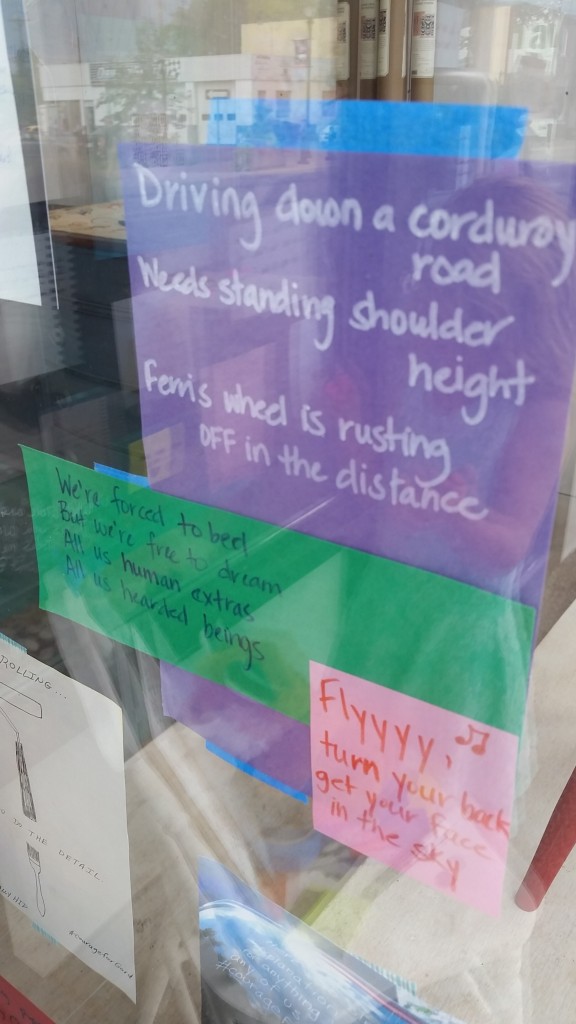 Driving down a corduroy
road
Weeds standing shoulder
height
Ferris wheel is rusting
OFF in the distance
We're forced to bed
But we're free to dream
All us human extras
All us hearded beings
Flyyyy,
turn your back
get your face
in the sky
ROLLING...
TO THE DETAIL
#couragetorgood